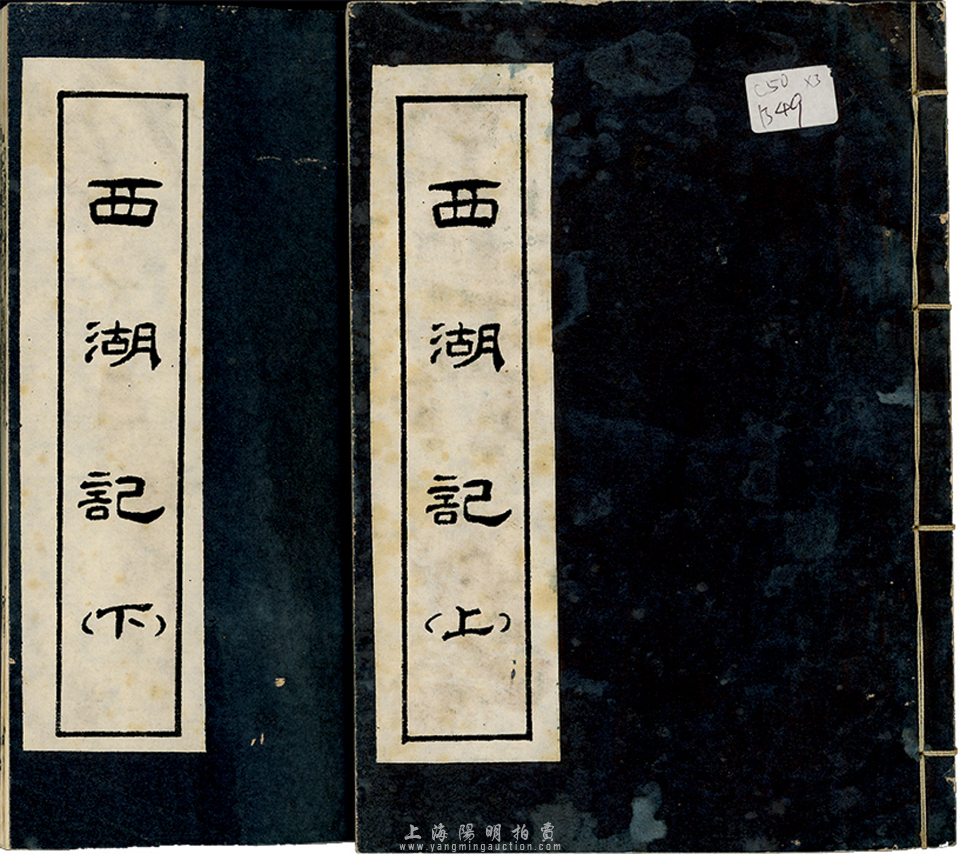 西湖記(下)
西湖記(上)
C50 X3
B49
上海陽明拍賣
www.yangmingauction.com